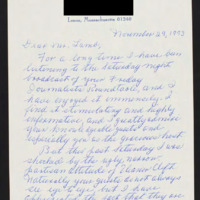 Lenox, Massachusetts 01240
November 29, 1993
Dear Mr. Lamb,
For a long time I have been
listening to the Saturday night
broadcast of your Friday
Journalists Roundtable, and I
have enjoyed it immensely. I
find it stimulating and highly
informative, and I greatly admire
your knowledgeable guests and
especially you as the gracious host.
But this last Saturday I was
shocked by the ugly, narrow,
partisan attitude of Eleanor Clift.
Naturally your guests do not always
see eye to eye, but I have
the fact that they are